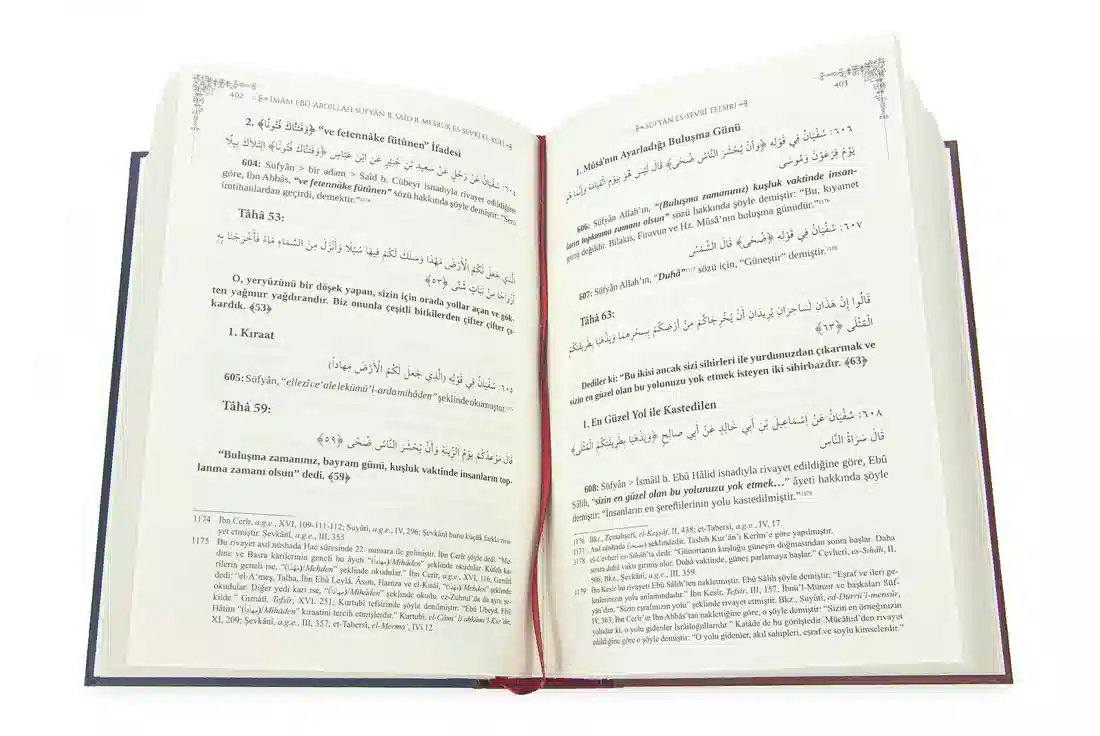 402 İMÂM EBÛ ABDİLLAH SÜFYÂN B. SAÎD B. MESRÛK ES-SEVRÎ EL-KÛFÎ
2. ﴿وَفَتَنَّاكَ فُتُونًا﴾ “ve fetennâke fütûnen” İfadesi
٦٠٤: سُفْيَانُ عَنْ رَجُلٍ عَنْ سَعِيدِ بْنِ جُبَيْرٍ عَنِ ابْنِ عَبَّاسٍ ﴿وَفَتَنَّاكَ فُتُونًا﴾ ابْتَلَاكَ بِبَلَاءٍ
604: Süfyân > bir adam > Saîd b. Cübeyr isnadıyla rivayet edildiğine
göre, İbn Abbâs, “ve fetennâke fütûnen” sözü hakkında şöyle demiştir: “Seni
imtihanlardan geçirdi, demektir.”1174
Tâhâ 53:
الَّذِي جَعَلَ لَكُمُ الْأَرْضَ مَهْدًا وَسَلَكَ لَكُمْ فِيهَا سُبُلًا وَأَنْزَلَ مِنَ السَّمَاءِ مَاءً فَأَخْرَجْنَا بِهِ
أَزْوَاجًا مِنْ نَبَاتٍ شَتَّى ﴿٥٣﴾
O, yeryüzünü bir döşek yapan, sizin için orada yollar açan ve gök-
ten yağmur yağdırandır. Biz onunla çeşitli bitkilerden çifter çifter çı-
kardık. ﴾53﴿
1. Kıraat
٦٠٥: سُفْيَانُ فِي قَوْلِهِ (الَّذِي جَعَلَ لَكُمُ الْأَرْضَ مِهَاداً)
605: Süfyân, “ellezî ce’ale lekümü’l-arda mihâden” şeklinde okumuştur.1175
Tâhâ 59:
قَالَ مَوْعِدُكُمْ يَوْمُ الزِّينَةِ وَأَنْ يُحْشَرَ النَّاسُ ضُحًى ﴿٥٩﴾
“Buluşma zamanınız, bayram günü, kuşluk vaktinde insanların top-
lanma zamanı olsun” dedi. ﴾59﴿
1174 İbn Cerîr, a.g.e., XVI, 109-111-112; Suyûtî, a.g.e., IV, 296; Şevkânî bunu küçük farkla riva-
yet etmiştir. Şevkânî, a.g.e., III, 355
1175 Bu rivayet asıl nüshada Hac sûresinde 22. numara ile gelmiştir. İbn Cerîr şöyle dedi: “Me-
dine ve Basra kârîlerinin geneli bu âyeti “(مهادا)/Mihâden” şeklinde okudular. Kûfeli kâ-
rilerin geneli ise, “(مهدا)/Mehden” şeklinde okudular.” İbn Cerîr, a.g.e., XVI, 116; Gırnâtî
dedi: “el-A’meş, Talha, İbn Ebû Leylâ, Âsım, Hamza ve el-Kisâî, “(مهدا)/Mehden” şeklinde
okudular. Diğer yedi kari ise, “(مهادا)/Mihâden” şeklinde okudu. ez-Zuhruf’da da aynı şe-
kilde.” Gırnâtî, Tefsîr, XVI, 251; Kurtubî tefsirinde şöyle denilmiştir: “Ebû Ubeyd, Ebû
Hâtim “(مهادا)/Mihâden” kıraatini tercih etmişlerdir.” Kurtubî, el-Câmi’ li ahkâmi’l-Kur’ân,
XI, 209; Şevkânî, a.g.e., III, 357; et-Tabersî, el-Mecma’, IVi 12.
SÜFYÂN ES-SEVRÎ TEFSİRİ 403
1. Mûsâ'nın Ayarladığı Buluşma Günü
٦٠٦: سُفْيَانُ فِي قَوْلِهِ ﴿وَأَنْ يُحْشَرَ النَّاسُ ضُحًى﴾ قَالَ لَيْسَ هُوَ بِيَوْمِ الْقِيَامَةِ وَإِنَّمَا هُوَ
يَوْمُ فِرْعَوْنَ وَمُوسَى
606: Süfyân Allah’ın, “(Buluşma zamanınız) kuşluk vaktinde insan-
ların toplanma zamanı olsun” sözü hakkında şöyle demiştir: “Bu, kıyamet
günü değildir. Bilakis, Firavun ve Hz. Mûsâ’nın buluşma günüdür.”1176
٦٠٧: سُفْيَانُ فِي قَوْلِهِ ﴿ضُحًى﴾ قَالَ الشَّمْسُ
607: Süfyân Allah’ın, “Duhâ”1177 sözü için, “Güneştir” demiştir.1178
Tâhâ 63:
قَالُوا إِنْ هَذَانِ لَسَاحِرَانِ يُرِيدَانِ أَنْ يُخْرِجَاكُمْ مِنْ أَرْضِكُمْ بِسِحْرِهِمَا وَيَذْهَبَا بِطَرِيقَتِكُمُ
الْمُثْلَى ﴿٦٣﴾
Dediler ki: “Bu ikisi ancak sizi sihirleri ile yurdunuzdan çıkarmak ve
sizin en güzel olan bu yolunuzu yok etmek isteyen iki sihirbazdır. ﴾63﴿
1. En Güzel Yol ile Kastedilen
٦٠٨: سُفْيَانُ عَنْ إِسْمَاعِيلَ بْنِ أَبِي خَالِدٍ عَنْ أَبِي صَالِحٍ ﴿وَيَذْهَبَا بِطَرِيقَتِكُمُ الْمُثْلَى﴾
قَالَ سَرَاةُ النَّاسِ
608: Süfyân > İsmâil b. Ebû Hâlid isnadıyla rivayet edildiğine göre, Ebû
Sâlih, “sizin en güzel olan bu yolunuzu yok etmek…” âyeti hakkında şöyle
demiştir: “İnsanların en şereflilerinin yolu kastedilmiştir.”1179
1176 Bkz., Zemahşerî, el-Keşşâf, II, 438; et-Tabersî, a.g.e., IV, 17.
1177 Asıl nüshada şeklindedir. Tashih Kur’ân’ı Kerîm’e göre yapılmıştır.
1178 el-Cevherî es-Sıhâh’ta dedi: “Günortanın kuşluğu güneşin doğmasından sonra başlar. Daha
sonra duhâ vakti girmiş olur. Duhâ vaktinde, güneş parlamaya başlar.” Cevherî, es-Sıhâh, II,
506; Bkz., Şevkânî, a.g.e., III, 359.
1179 İbn Kesîr bu rivayeti Ebû Sâlih’ten nakletmiştir. Ebû Sâlih şöyle demiştir: “Eşraf ve ileri ge-
lenlerinizin yolu anlamındadır.” İbn Kesîr, Tefsîr, III, 157; İbnü’l-Münzir ve başkaları Süf-
yân’dan, “Sizin eşrafınızın yolu” şeklinde rivayet etmiştir. Bkz., Suyûtî, ed-Dürrü’l-mensûr,
IV, 303; İbn Cerîr’in İbn Abbâs’tan naklettiğine göre, o şöyle demiştir: “Sizin en örneğinizin
yoludur ki, o yolu gidenler İsrâiloğullarıdır.” Katâde de bu görüştedir. Mücâhid’den rivayet
edildiğine göre o şöyle demiştir: “O yolu gidenler, akıl sahipleri, eşraf ve soylu kimselerdir.”